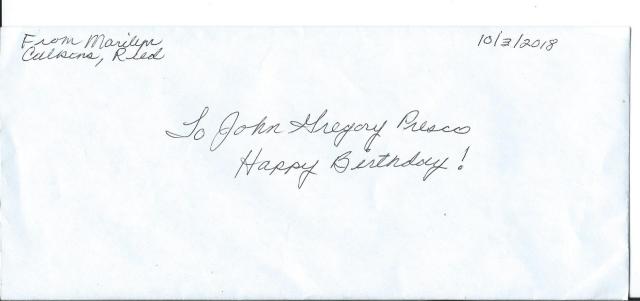 From Marilyn
Reed
10/3/2018
To John Gregory Presco
Happy Birthday!